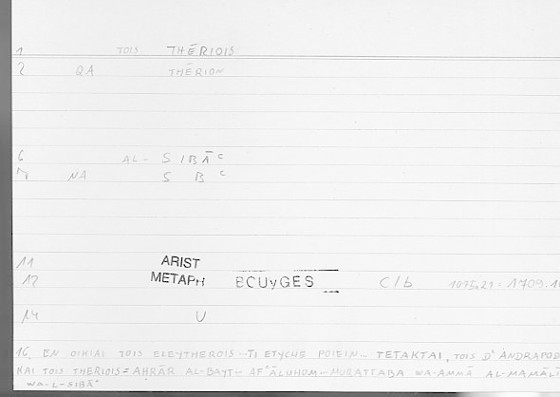 1 TOIS THĒRIOIS
2 QA THĒRION
6 AL- SIBĀ c
7 NA S B c
11 ARIST
12 METAPH BCUyGES C/b 1075,21 : 1709.10
14 U
16 EN OIKIAI TOIS ELEYTHEROIS - TI ETYCHE POIEIN - TETAKTAI, TOIS D' ANDRAPOD
KAI TOIS THERIOIS = AḤRĀR AL-BAYT - AF'ĀLUHOM - MURATTABA WA-AMMĀ AL-MAMĀLĪ
WA-L-SIBĀ'